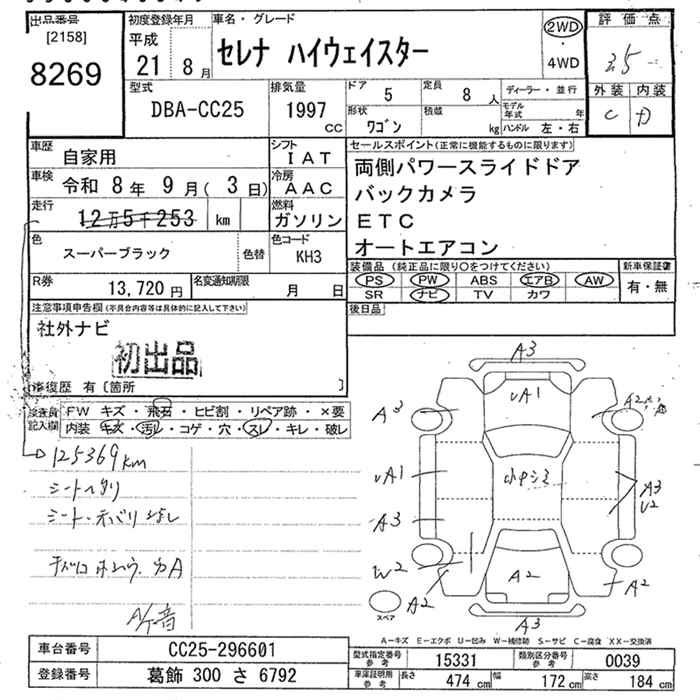 出品番号
[2158]
8269
初度登録年月
平成
21 8月
車名・グレード
セレナ ハイウェイスター
2WD
・
4WD
評価点
3.5
外装 内装
C D
型式
DBA-CC25
排気量
1997
CC
ドア
5
定員
8 人
形状
ワゴン
積載
kg
ディーラー・並行
モデル年式 年
ハンドル 左・右
車歴
自家用
シフト
IAT
車検
令和 8年 9月( 3日)
冷房
AAC
走行
12万5千253 km
燃料
ガソリン
色
スーパーブラック
色替
色コード
KH3
R券
13,720円
名変通知期限
月 日
セールスポイント(正常に機能するものに限ります)
両側パワースライドドア
バックカメラ
ETC
オートエアコン
装備品 (純正品に限り○をつけてください)
PS PW ABS エアB AW
SR ナビ TV カワ
新車保証書
有・無
後日品
注意事項申告欄(不具合内容等は具体的に記入して下さい)
社外ナビ
初出品
修復歴 有〔箇所 〕
検査員
記入欄
FW キズ・飛石・ヒビ割・リペア跡・×要
内装 キズ・汚レ・コゲ・穴・スレ・キレ・破レ
125369km
シートヘタリ
A3
UA1
A3
A2
UA1
A3
小キズミ
A3
U2
W2
A2
A2
A2
A3
スペア
A-キズ E-エクボ U-凹み W-補修跡 S-サビ C-腐食 XX-交換済
車台番号
CC25-296601
登録番号
葛飾 300 さ 6792
型式指定番号
参考
15331
類別区分番号
参考
0039
車庫証明用
参考
長さ
474 cm
幅
172 cm
高さ
184 cm